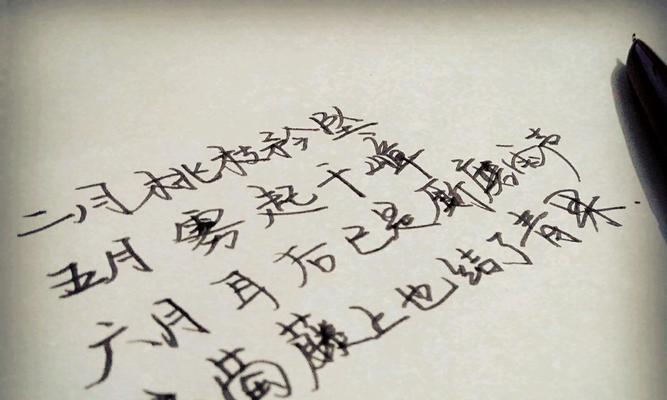 二月桃枝予坠
五月雾起千嶂
六月耳后已是厮磨声
萄藤上也结了青果.